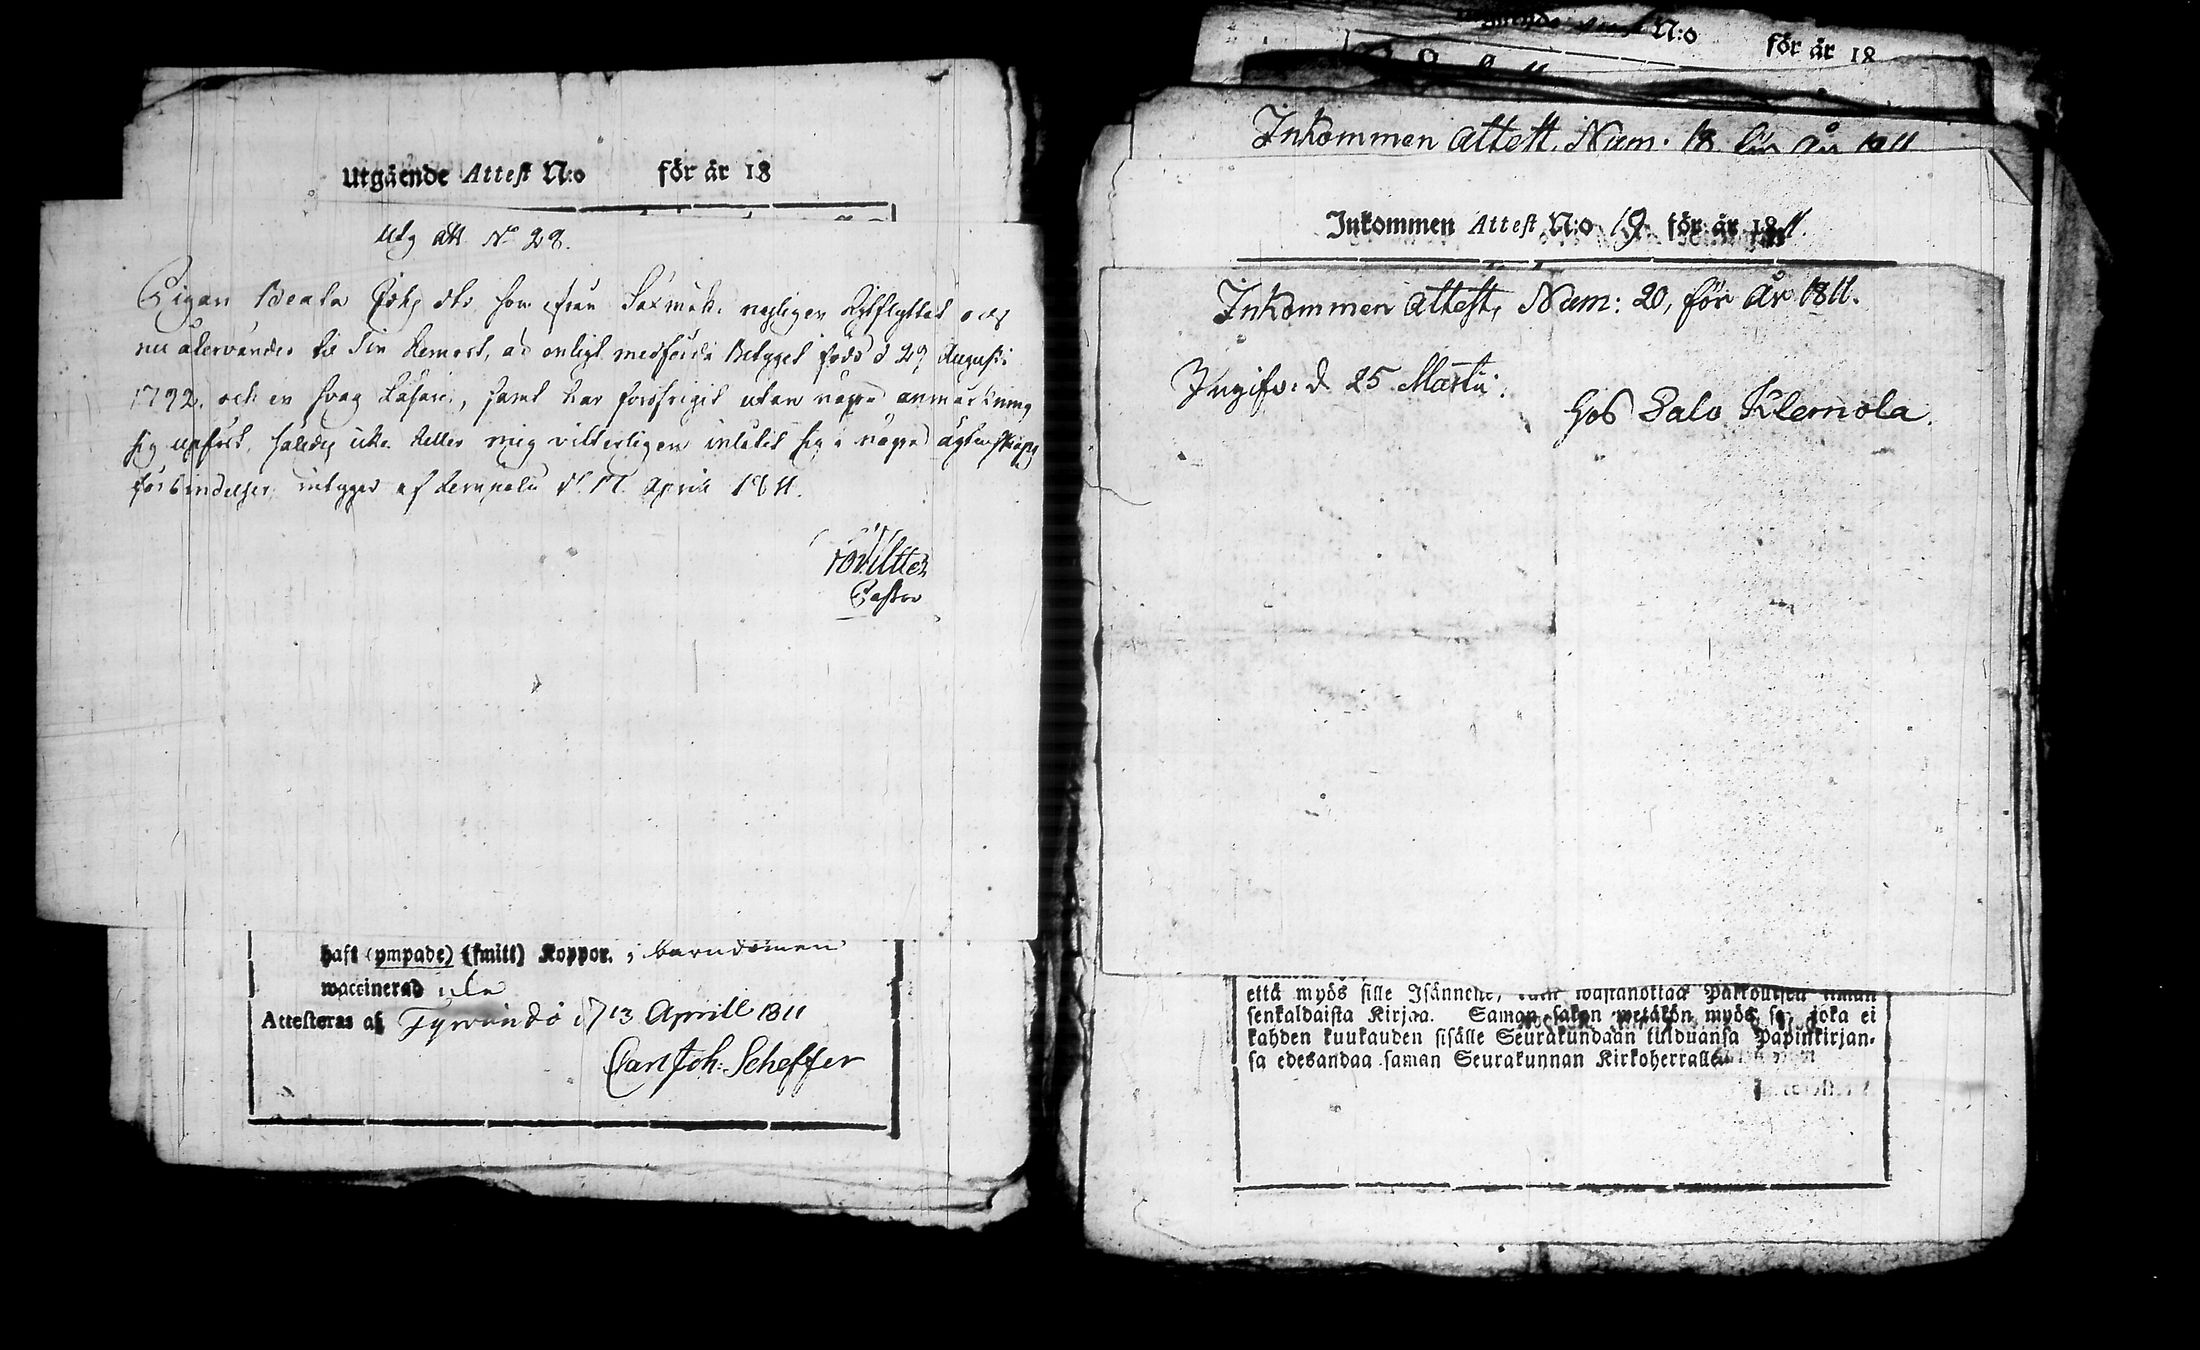 Utgående Attest N:o för år 18
Utg att. No 28.
Pigan Beata Johs dtr som från Saxmäki nyligen hitflyttat och
nu återvänder til Sin Hemort, är enligt medförda Betyget född d 29 Augusti
1792. och en svag Läsare, samt har föröfrigit utan någon anmärkning
sig upfört, således icke heller mig vitterligen inlåtit sig i någon ägtenskaps
förbindelser, intygar af Lempälä d. 17. April 1811.
Pastor
haft (ympade) (smitt) Koppor. i barndomen
waccinerad icke
Attesteras af Tyrvändö d 13 Aprill 1811
Carl Joh. Scheffer
N:o för år 18
Inkommen attest, Num. 18 för År 1811
Inkommen Attest N:o 19 för år 1811.
Inkommen attest, Num: 20, för År 1811.
Ingifv: d. 25 Martii.
hos Salo Klemola.
että myös sille Isännelle, wastanottaa Palkollisen ilman
senkaldaista Kirjaa. Saman sakon wetäkön myös se, joka ei
kahden kuukauden sisälle Seurakundaan tulduansa Papinkirjan-
sa edesandaa saman Seurakunnan Kirkoherralle.